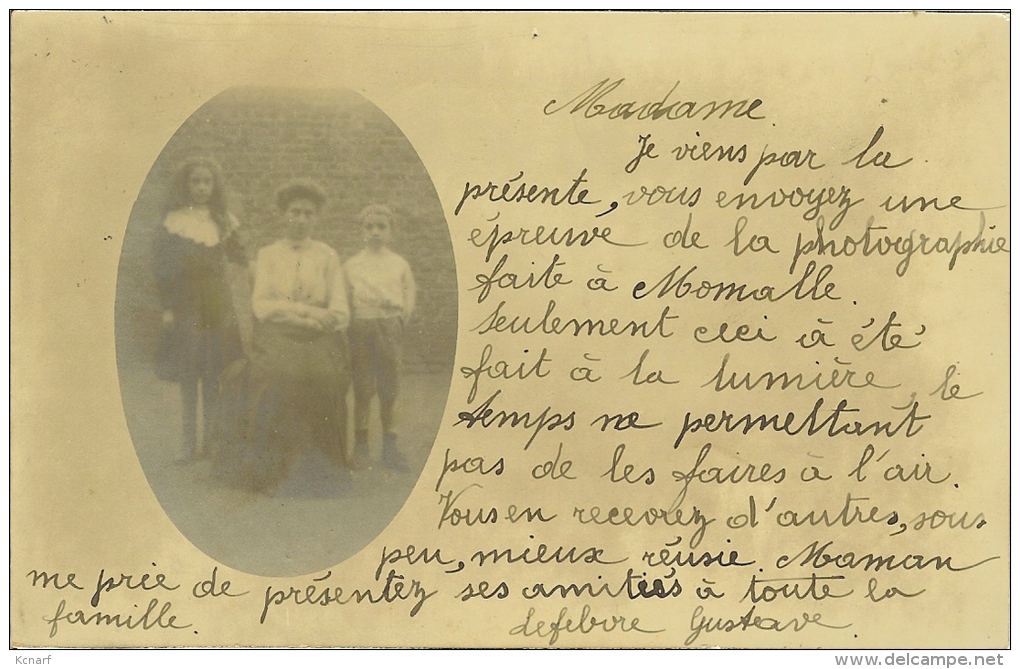 Madame
Je viens par la
présente, vous envoyez une
épreuve de la photographie
faite à Momalle.
Seulement ceci à été
fait à la lumière, le
temps ne permettant
pas de les faires à l'air.
Vous en recevrez d'autres, sous
peu, mieux réusie. Maman
me prie de présentez ses amitiés à toute la
famille.
Lefebvre Gustave.
Kcnarf
www.delcampe.net